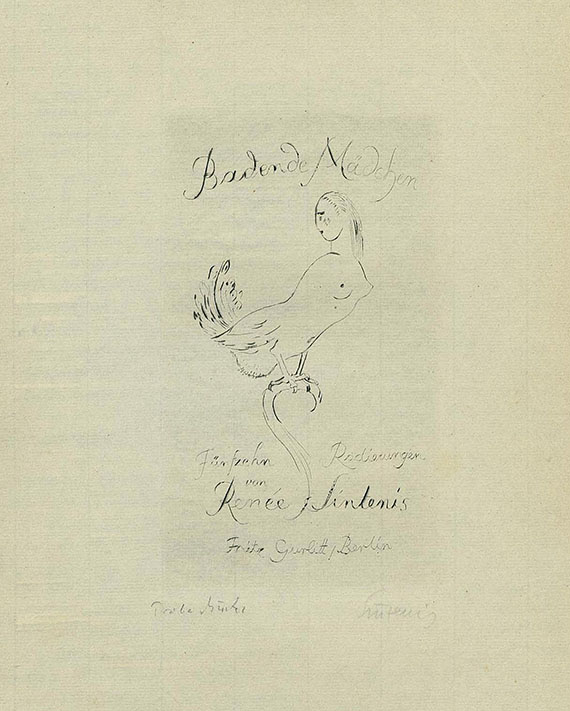 Badende Mädchen
Fünfzehn Radierungen
von
Renée Sintenis
Fritz Gurlitt / Berlin
Sintenis